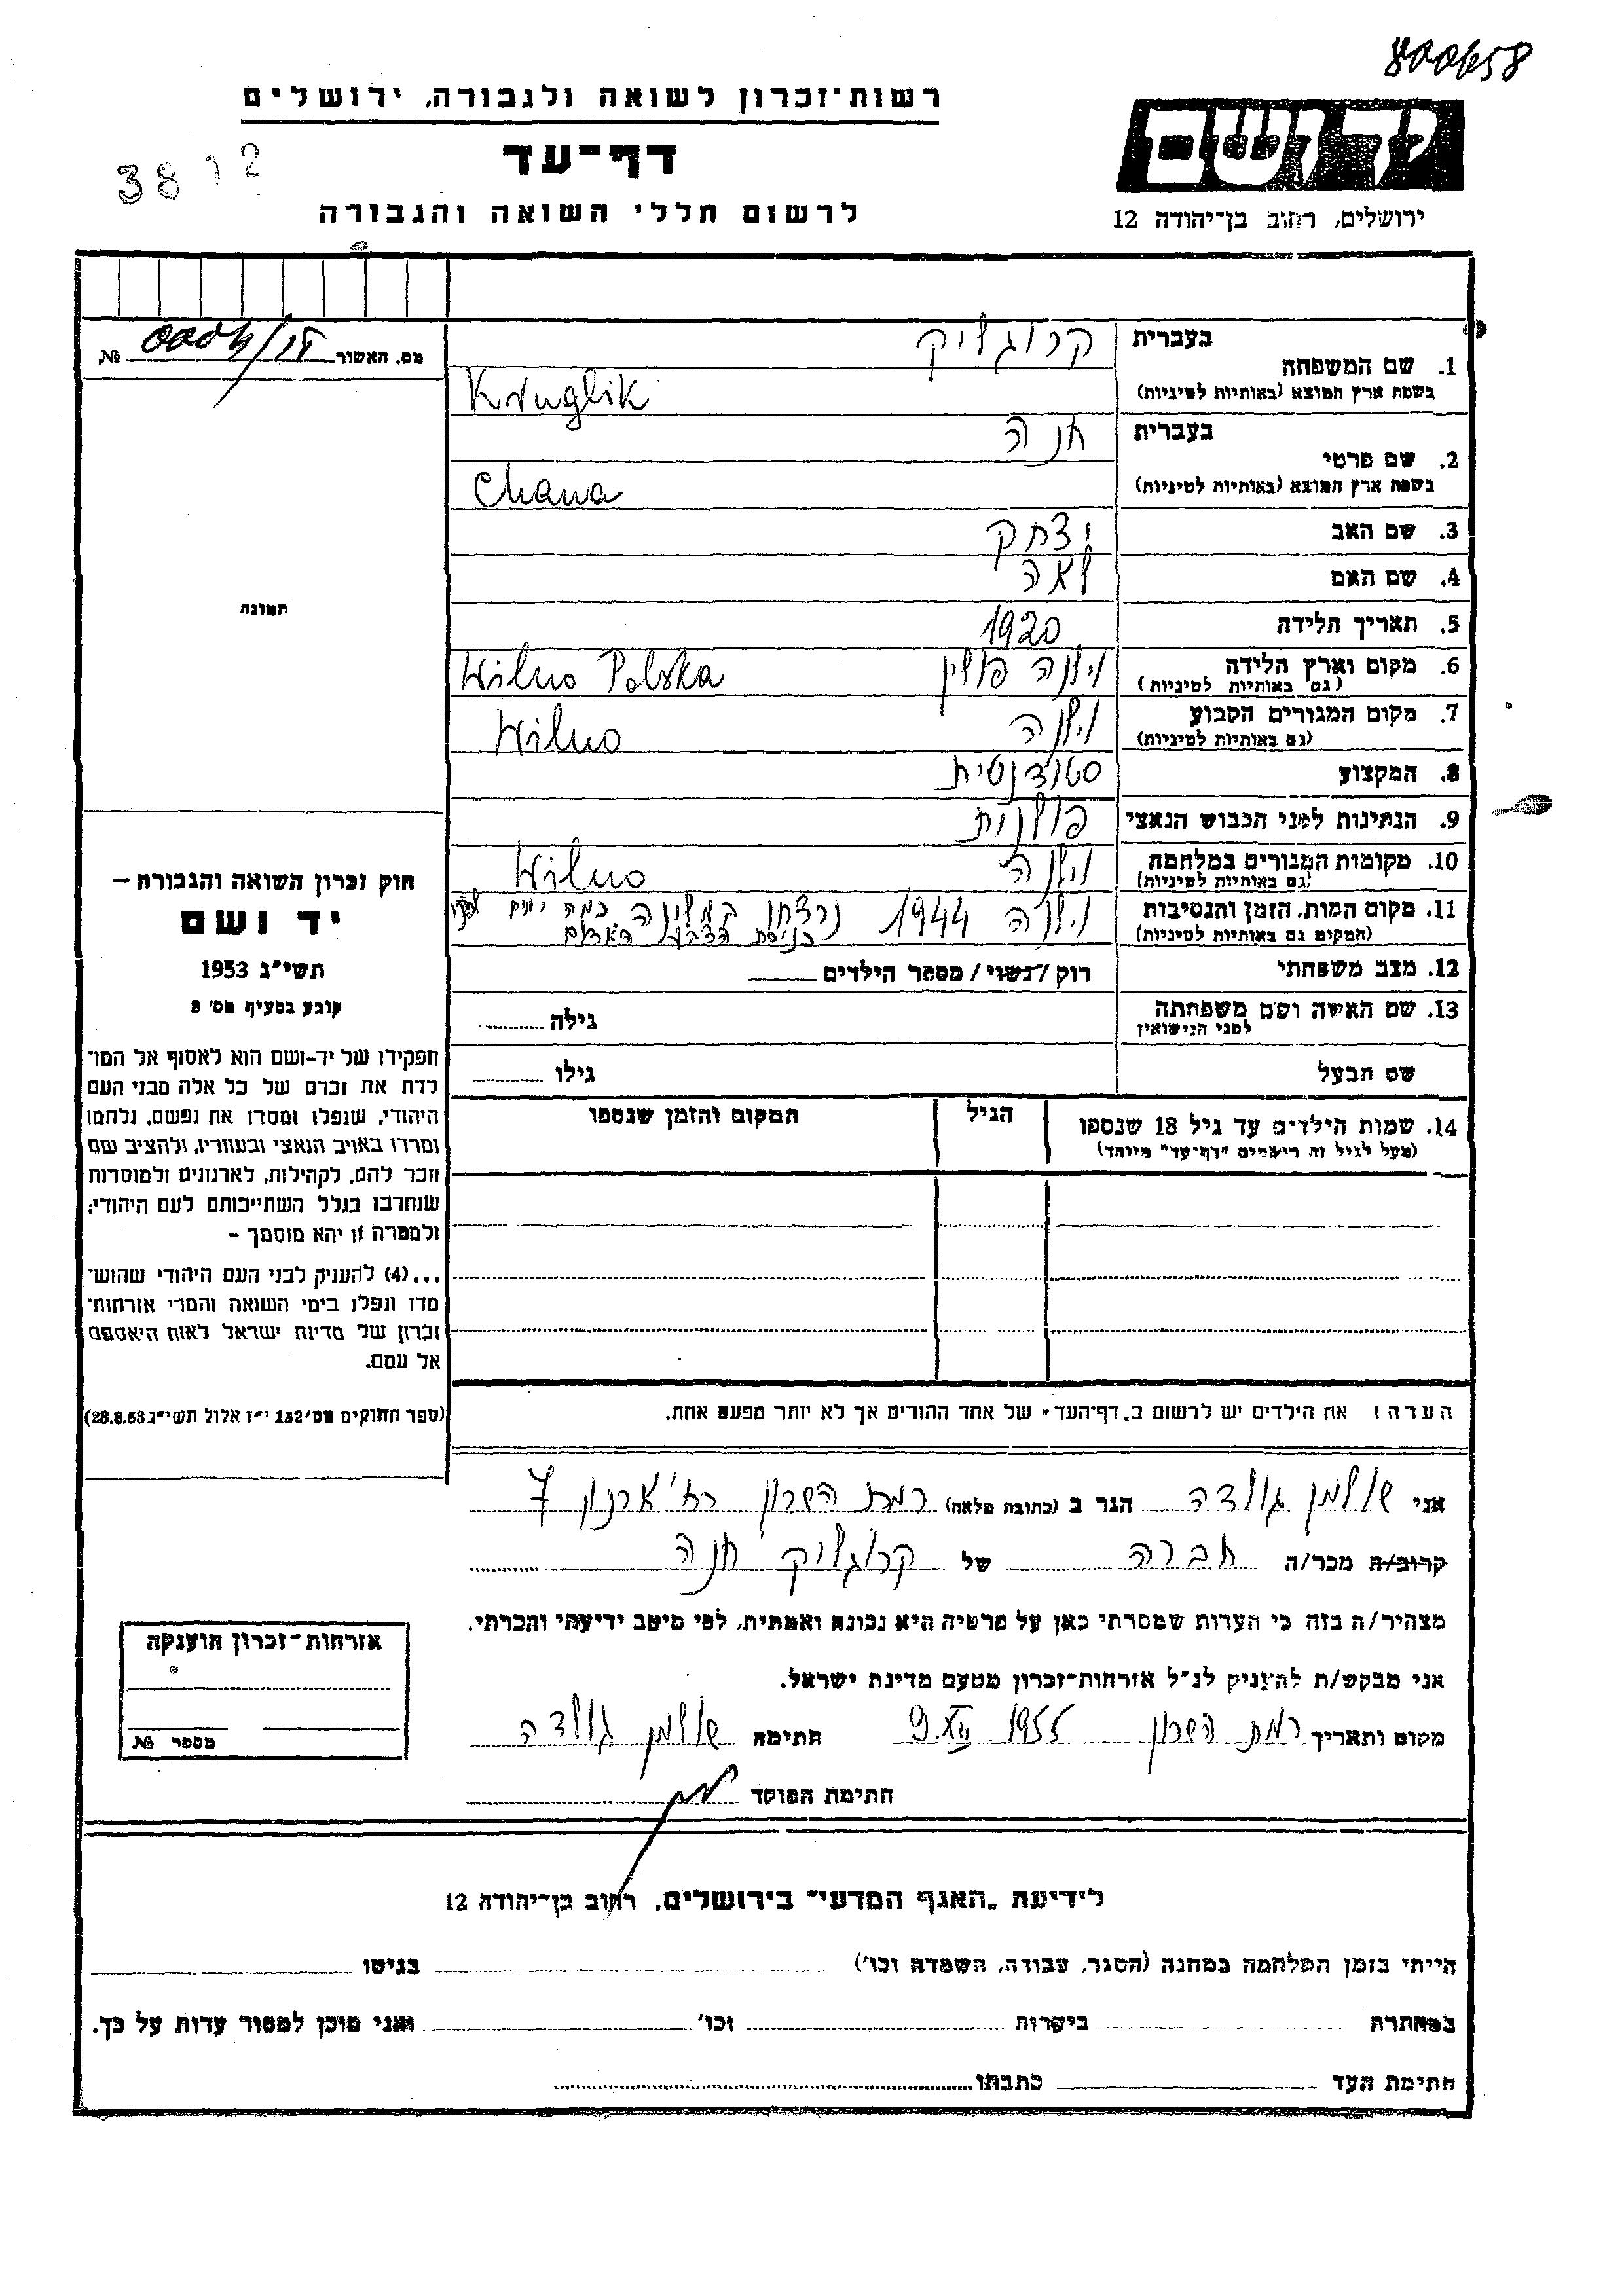 800658
רשות־זכרון לשואה ולגבורה, ירושלים
דף־עד
לרשום חללי השואה והגבורה
3812
יד ושם
ירושלים, רחוב בן־יהודה 12
מס. האשור № 
בעברית קרוגליק
1. שם המשפחה
בשפת ארץ המוצא (באותיות לטיניות) Kruglik
בעברית חנה
2. שם פרטי
בשפת ארץ המוצא (באותיות לטיניות) Chana
3. שם האב יצחק
4. שם האם לאה
5. תאריך הלידה 1920
6. מקום וארץ הלידה וילנה פולין Wilno Polska
(גם באותיות לטיניות)
7. מקום המגורים הקבוע וילנה Wilno
(גם באותיות לטיניות)
8. המקצוע סטודנטית
9. הנתינות לפני הכבוש הנאצי פולנית
10. מקומות המגורים במלחמה וילנה Wilno
(גם באותיות לטיניות)
11. מקום המות, הזמן והנסיבות וילנה 1944 נרצחו במלינה כמה ימים לפני
(המקום גם באותיות לטיניות) כניסת הצבא האדום
12. מצב משפחתי רוק/נשוי/מספר הילדים
13. שם האשה ושם משפחתה גילה
לפני הנישואין
שם הבעל גילו
14. שמות הילדים עד גיל 18 שנספו הגיל המקום והזמן שנספו
(מעל לגיל זה רושמים "דף־עד" מיוחד)
תמונה
חוק זכרון השואה והגבורה —
יד ושם
תשי"ג 1953
קובע בסעיף מס' 2
תפקידו של יד-ושם הוא לאסוף אל המו־
לדת את זכרם של כל אלה מבני העם
היהודי, שנפלו ומסרו את נפשם, נלחמו
ומרדו באויב הנאצי ובעוזריו, ולהציב שם
וזכר להם, לקהילות, לארגונים ולמוסדות
שנחרבו בגלל השתייכותם לעם היהודי;
ולמטרה זו יהא מוסמך —
...(4) להעניק לבני העם היהודי שהוש־
מדו ונפלו בימי השואה והמרי אזרחות־
זכרון של מדינת ישראל לאות היאספם
אל עמם.
(ספר החוקים מס' 132 י"ז אלול תשי"ג 28.8.53)
הערה: את הילדים יש לרשום ב"דף־העד" של אחד ההורים אך לא יותר מפעם אחת.
אני שולמן גולדה הגר ב (כתובת מלאה) רמת השרון רח' ארנון 7
קרוב/ה מכר/ה חברה של קרוגליק חנה
מצהיר/ה בזה כי העדות שמסרתי כאן על פרטיה היא נכונה ואמתית, לפי מיטב ידיעתי והכרתי.
אני מבקש/ת להעניק לנ"ל אזרחות־זכרון מטעם מדינת ישראל.
מקום ותאריך רמת השרון 9.XII 1955 חתימה שולמן גולדה
חתימת הפוקד
אזרחות־זכרון הוענקה
מספר №
לידיעת "האגף המדעי" בירושלים, רחוב בן־יהודה 12
הייתי בזמן המלחמה במחנה (הסגר, עבודה, השמדה וכו') בגיטו
במחתרת ביערות וכו' ואני מוכן למסור עדות על כך.
חתימת העד כתבתו